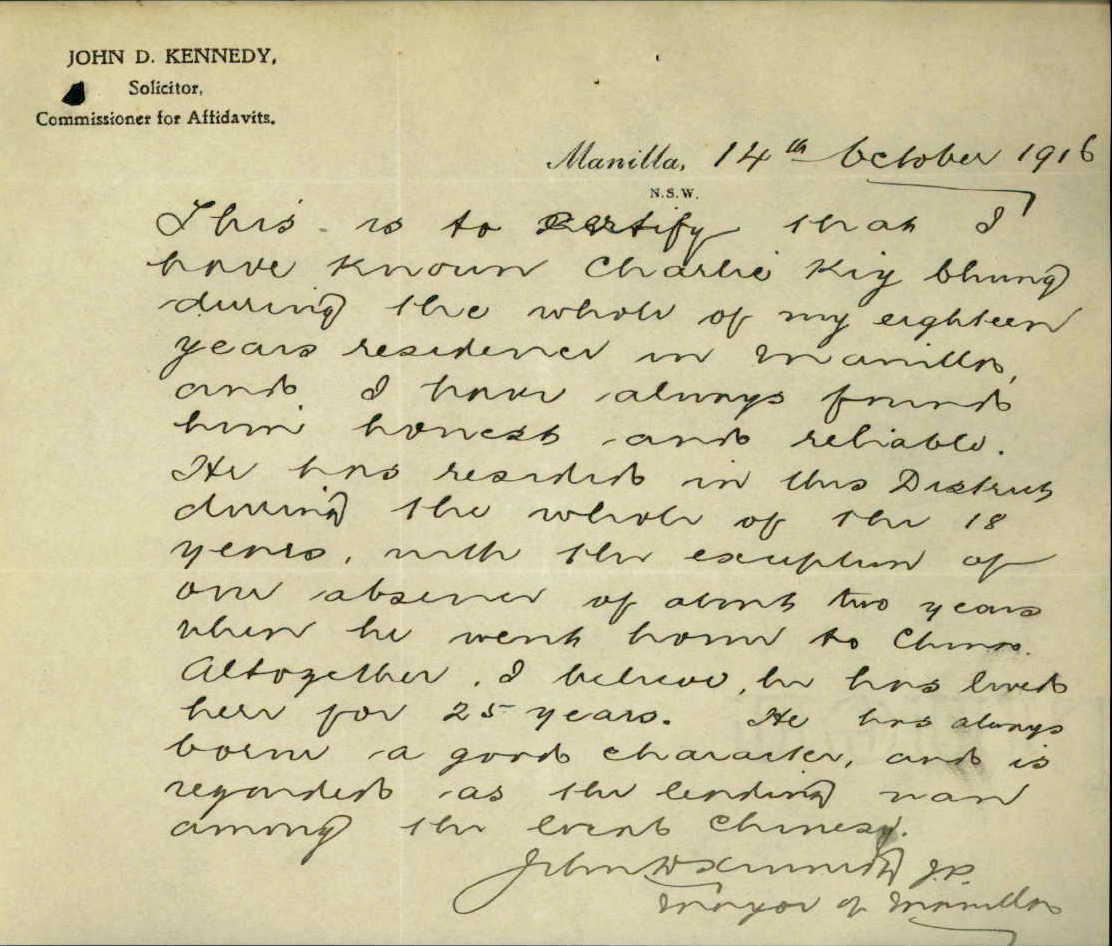 JOHN D. KENNEDY,
Solicitor,
Commissioner for Affidavits.
Manilla, 14th October 1916
N.S.W.
This is to certify that I
have known Charlie Kig Chung
during the whole of my eighteen
years residence in Manilla,
and I have always found
him honest and reliable.
He has resided in this District
during the whole of the 18
years, with the exception of
one absence of about two years
when he went home to China.
Altogether, I believe, he has lived
here for 25 years. He has always
borne a good character, and is
regarded as the leading man
among the local Chinese.
John D Kennedy J.P.
Mayor of Manilla